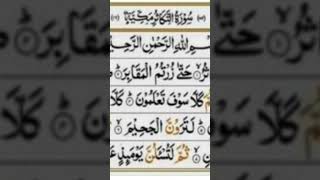 سُوْرَةُ التَّكَاثُرِ مَكِّيَّةٌ
اللهِ الرَّحْمٰنِ
حَتّٰى زُرْتُمُ الْمَقَابِرَ
كَلَّا سَوْفَ تَعْلَمُوْنَ كَلَّا
لَتَرَوُنَّ الْجَحِيْمَ
ثُمَّ لَتُسْـَٔلُنَّ يَوْمَئِذٍ